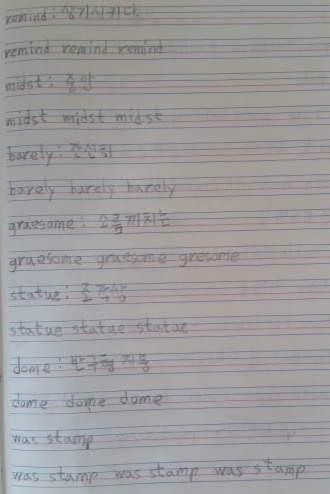 remind : 상기시키다
remind remind remind
midst : 중앙
midst midst midst
barely : 간신히
barely barely barely
gruesome : 소름끼치는
gruesome gruesome gresome
statue : 조각상
statue statue statue
dome : 반구형 지붕
dome dome dome
was stamp
was stamp was stamp was stamp